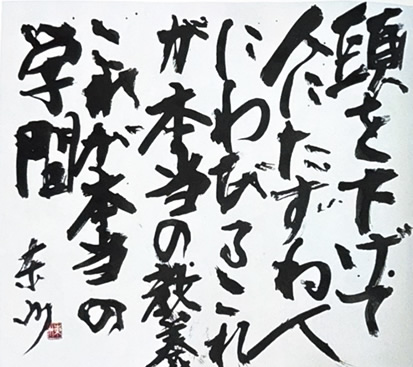 頭を下げて
人にたずね人
にわびるこれ
が本当の教養
これが本当の
学問